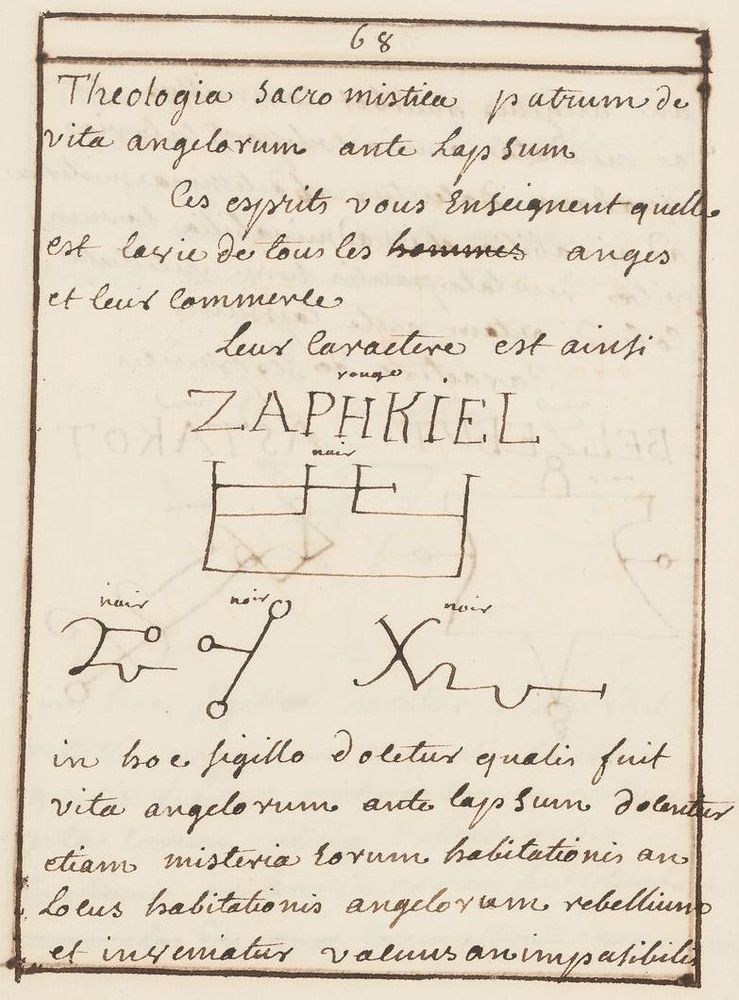 68
Theologia Sacro mistica patrum de
vita angelorum ante Lapsum
Ces esprits vous Enseignent quelle
est lavie de tous les hommes anges
et leur Commerce
Leur Caractere est ainsi
rouge
ZAPHKIEL
noir
noir noir noir
in hoc sigillo docetur qualis fuit
vita angelorum ante lapsum docentur
etiam misteria eorum habitationis an
Locus habitationis angelorum rebellium
et inveniatur vacuus an impasibilis